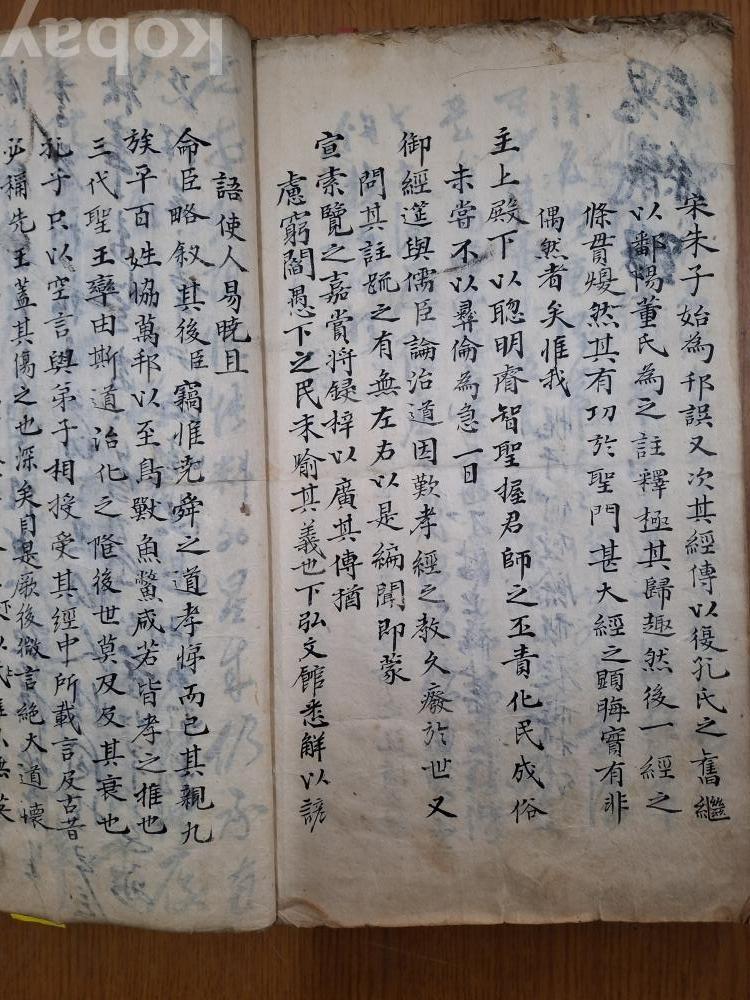 宋朱子始為刊誤又次其經傳以復孔氏之舊繼
以鄱陽董氏為之註釋極其歸趣然後一經之
條貫煥然其有功於聖門甚大經之顯晦實有非
偶然者矣惟我
主上殿下以聰明睿智聖握君師之丕責化民成俗
未嘗不以彝倫為急一日
御經筵與儒臣論治道因歎孝經之教久廢於世又
問其註疏之有無左右以是編聞即蒙
宣索覽之嘉賞將錄梓以廣其傳猶
慮窮閻愚下之民未喻其義也下弘文館悉解以諺
語使人易曉且
命臣略敘其後臣竊惟堯舜之道孝悌而已其親九
族平百姓協萬邦以至鳥獸魚鱉咸若皆孝之推也
三代聖王率由斯道治化之隆後世莫及及其衰也
孔子只以空言與弟子相授受其經中所載言及古昔
必稱先王蓋其傷之也深矣自是厥後微言絕大道壞
kobay